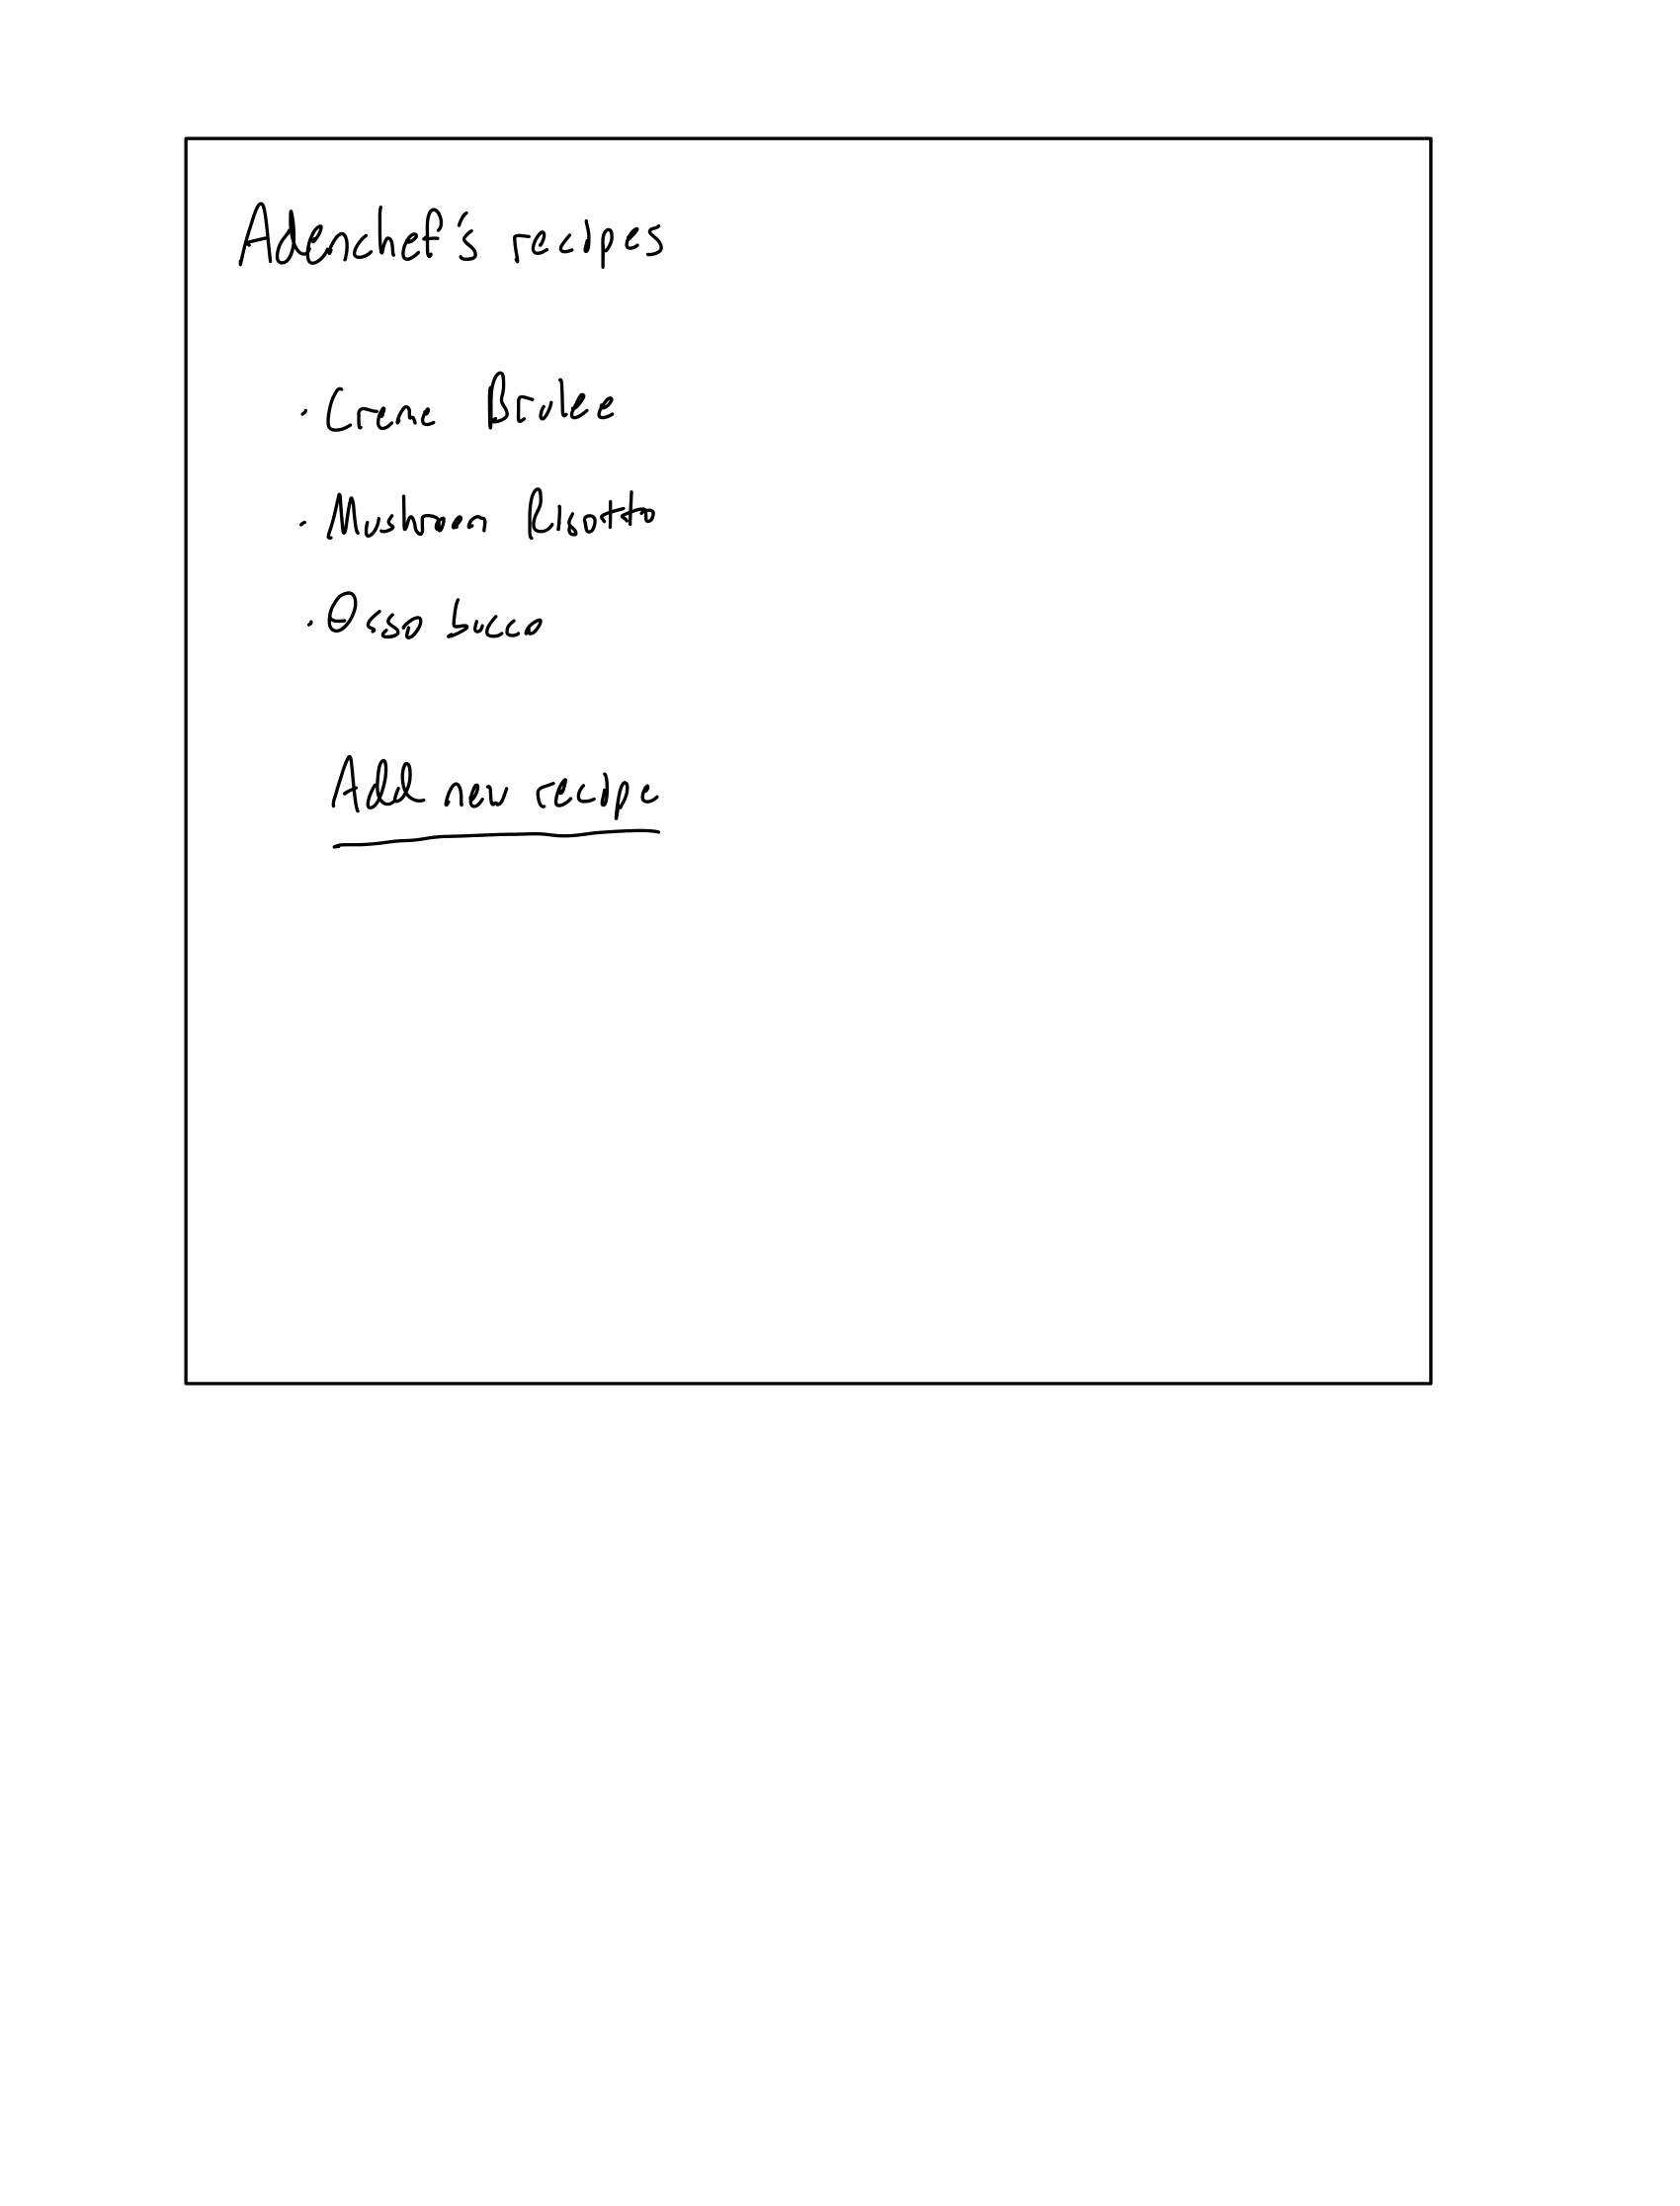 Adenchef's recipes
· Creme Brulee
· Mushroom Risotto
· Osso bucco
Add new recipe